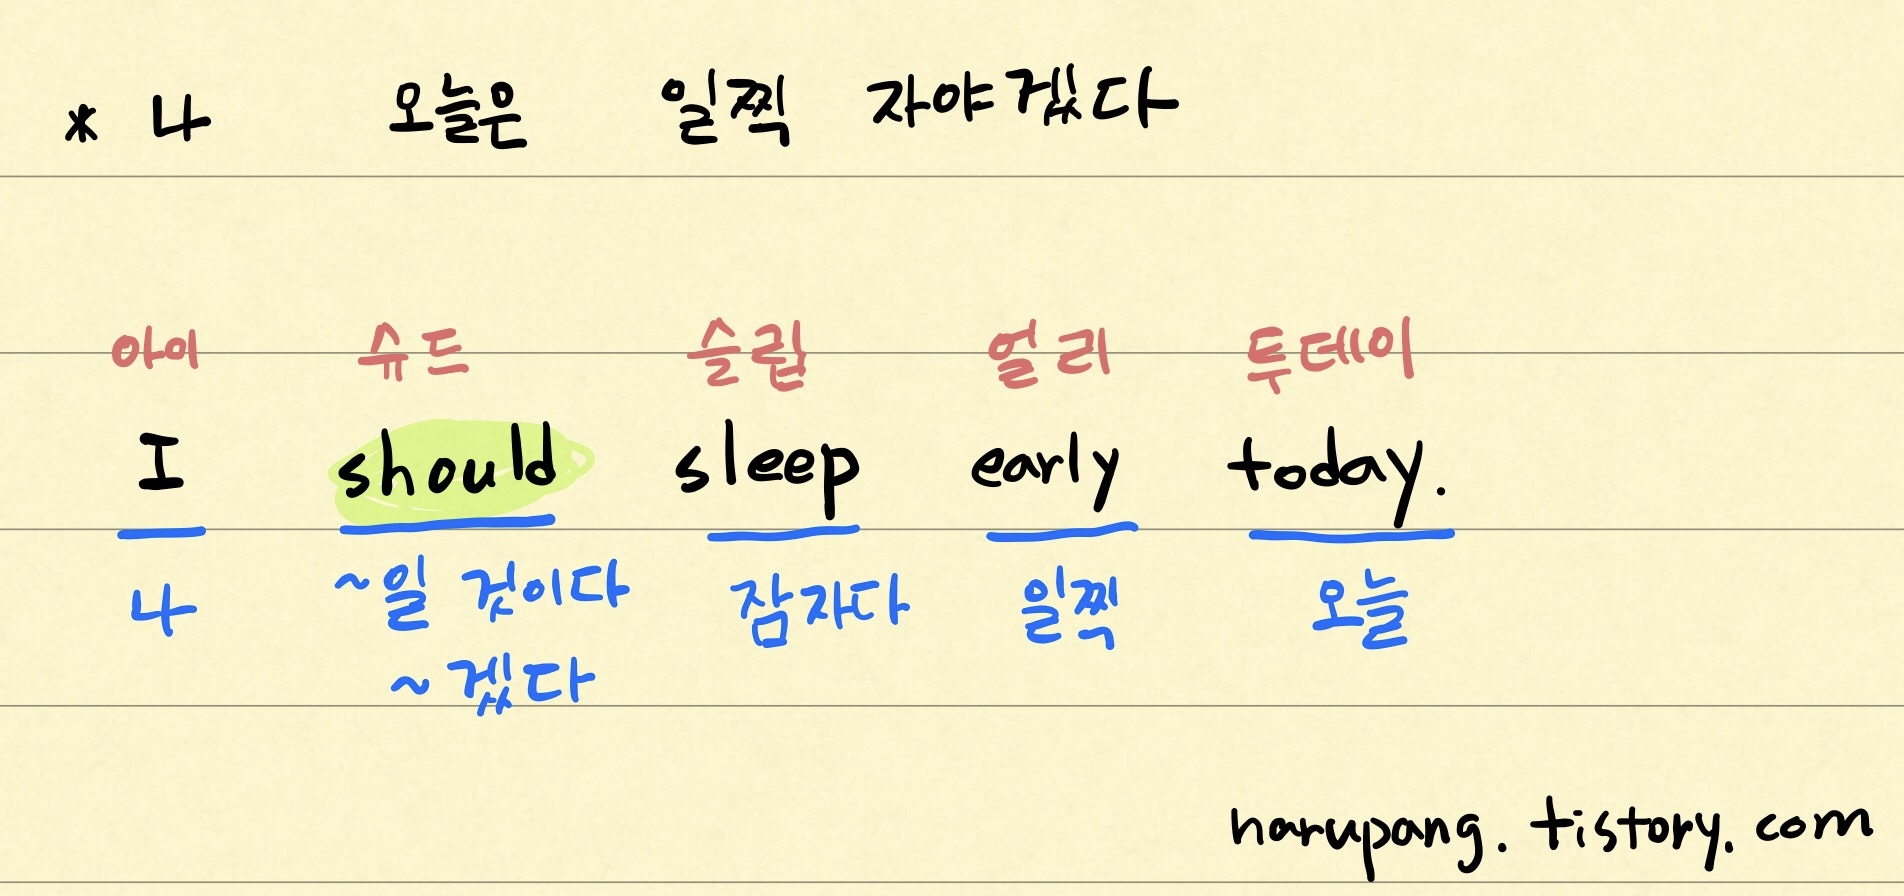 * 나 오늘은 일찍 자야겠다
아이 슈드 슬립 얼리 투데이
I should sleep early today.
나 ~일 것이다 잠자다 일찍 오늘
~겠다
harupang.tistory.com